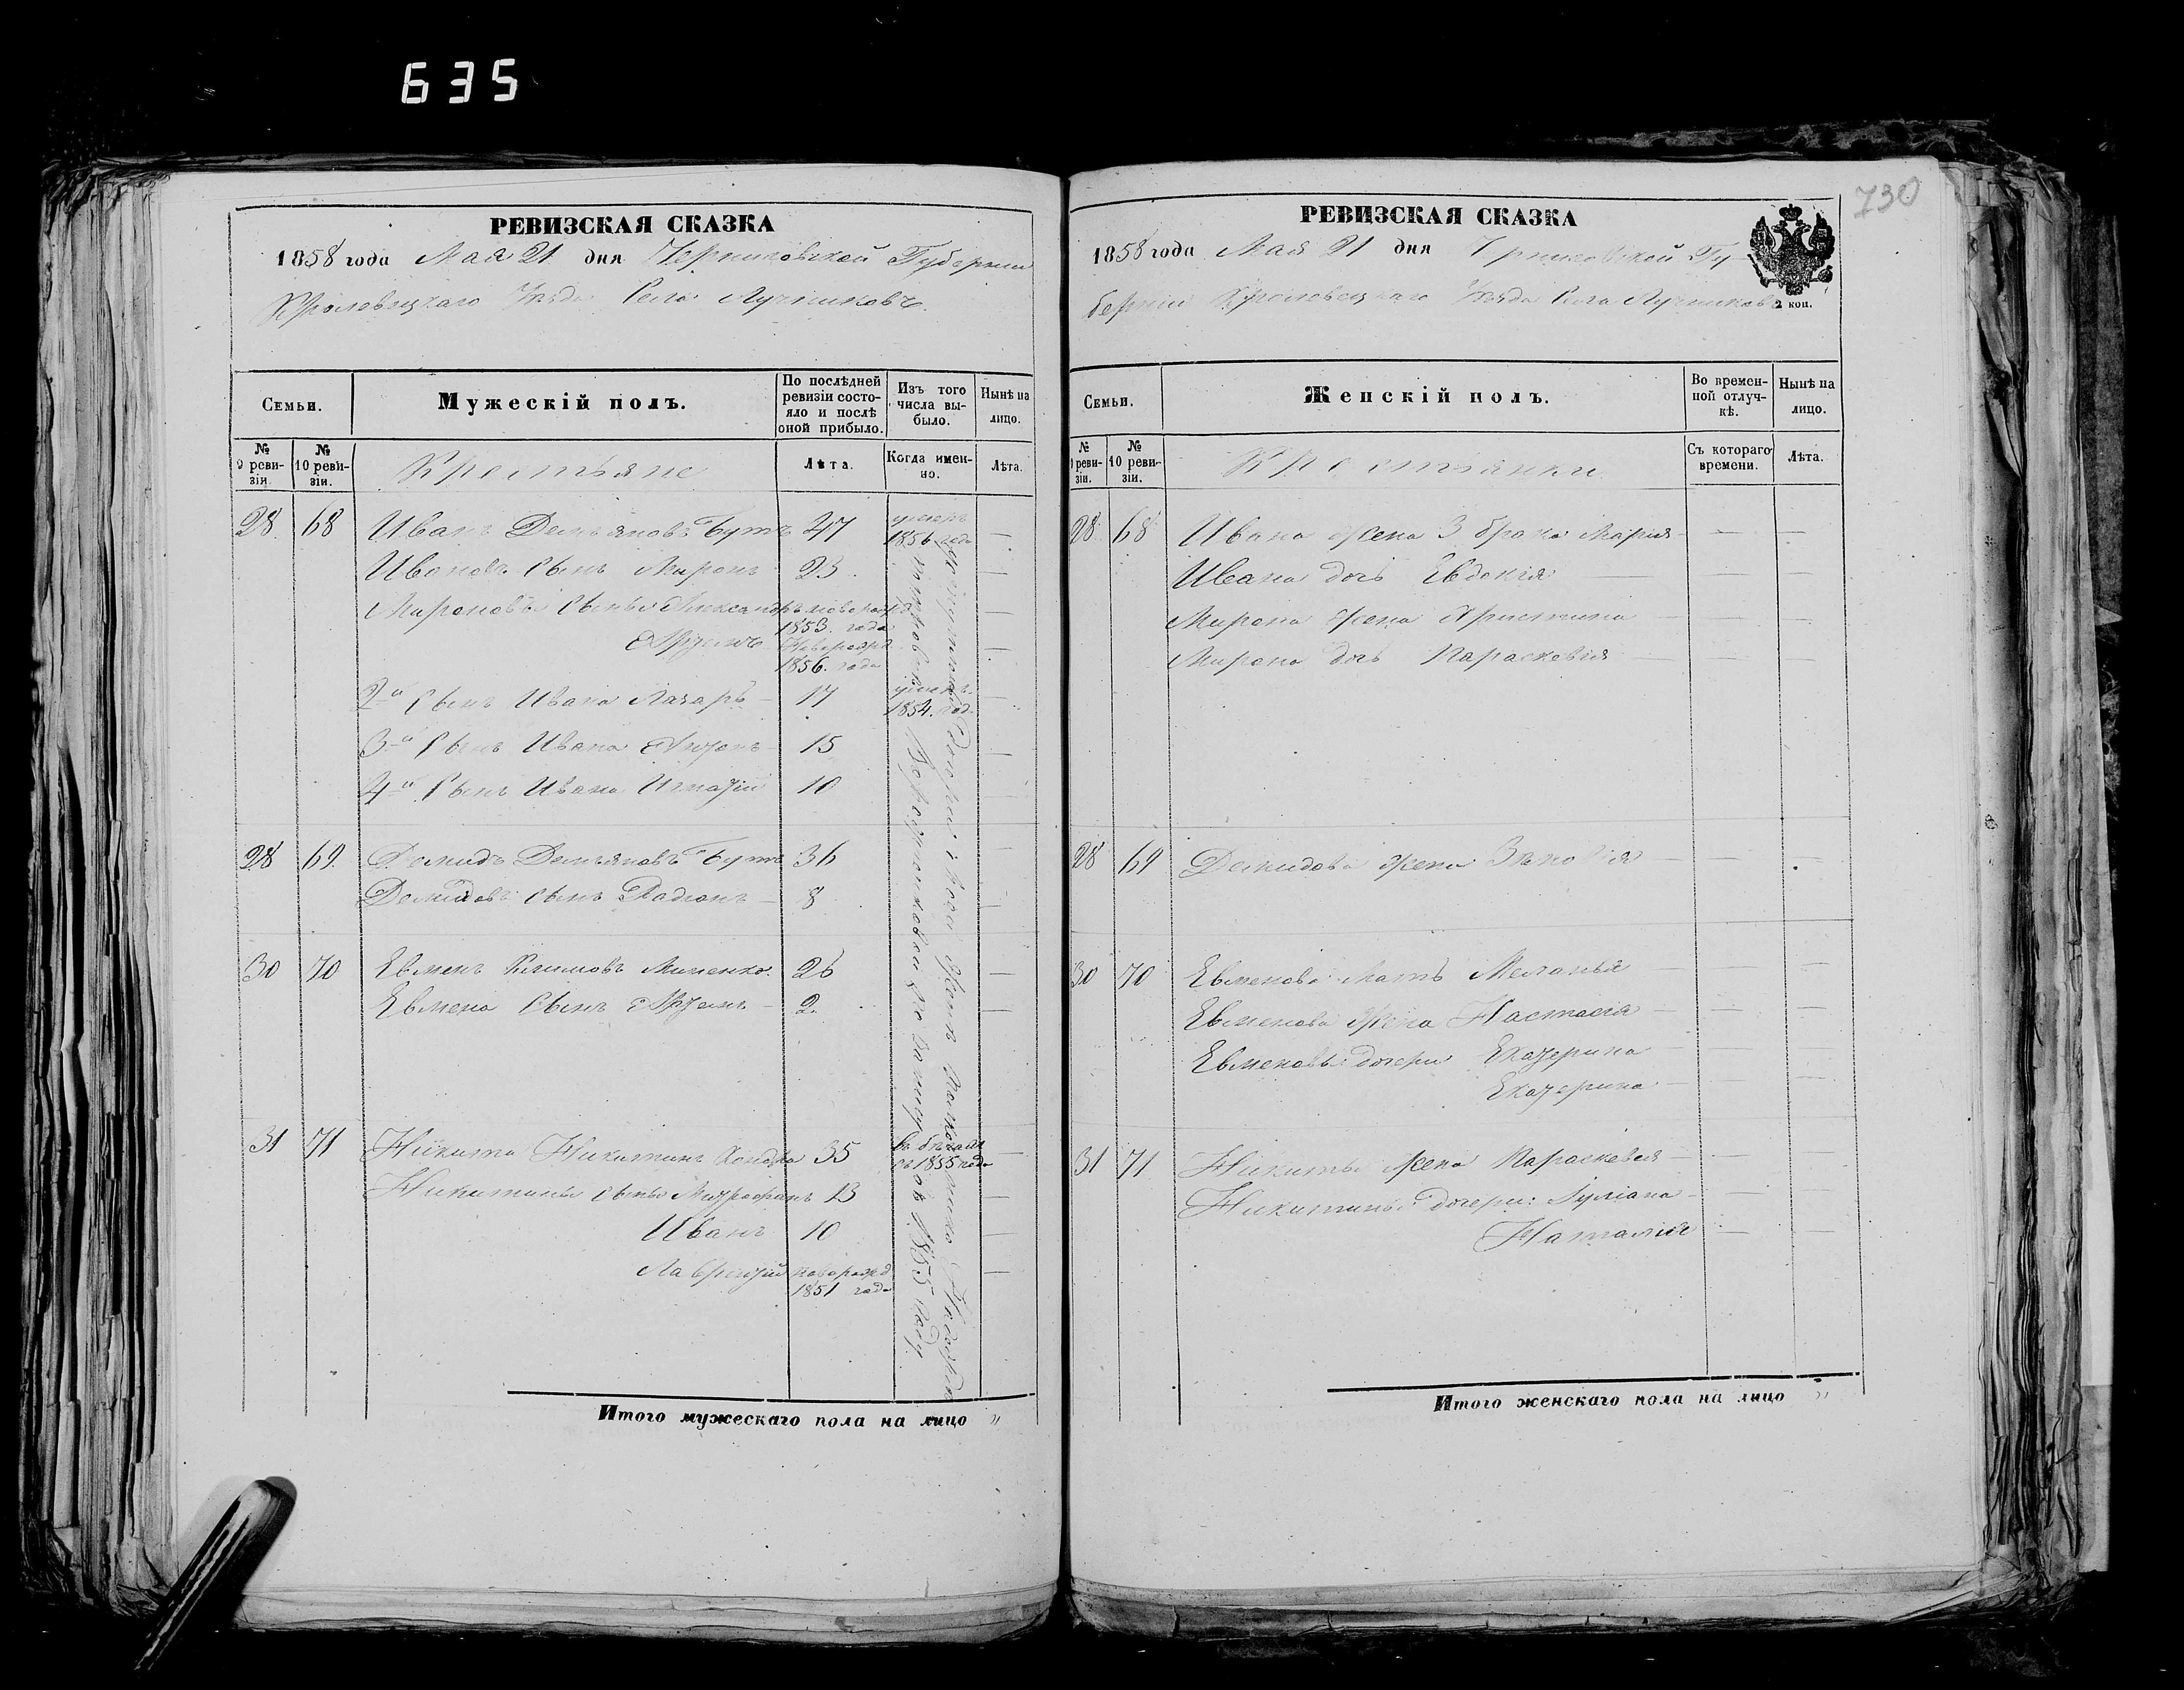 635
РЕВИЗСКАЯ СКАЗКА
1858 года Мая 21 дня Черниговской Губернии
Кролевецкаго Уѣзда Села Лучниковъ.
Семьи.
Мужескій полъ.
По послѣдней ревизіи состояло и послѣ оной прибыло.
Изъ того числа выбыло.
Нынѣ на лицо.
№ 9 ревизіи.
№ 10 ревизіи.
Крестьяне
Лѣта.
Когда именно.
Лѣта.
28 68 Иванъ Демьяновъ Бутъ 47 умеръ 1856 года —
Ивановъ Сынъ Миронъ 23. —
Мироновы Сынья Александръ новорожд. 1853. года —
новорожд. 1856. года —
2й Сынъ Ивана Лазарь — 17 умеръ 1854. года —
3й Сынъ Ивана — 15 —
4й Сынъ Ивана Игнатій 10 —
28 69. Демидъ Демьяновъ Бутъ 36 —
Демидовъ Сынъ Радіонъ — 8 —
30 70 Евменъ Климовъ Миненко. 26 —
Евмена Сынъ — 2. —
31 71 Никита Никитинъ 35 въ бѣгахъ съ 1855 года —
Никитины Сынья Митрофанъ 13 —
Иванъ 10 —
Лаврентій новорожд 1851 года —
1855 году
Итого мужескаго пола на лицо "
730
РЕВИЗСКАЯ СКАЗКА
1858 года Мая 21 дня Черниговской Гу-
берніи Кролевецкаго Уѣзда Села Лучниковъ
2 коп.
Семьи.
Женскій полъ.
Во временной отлучкѣ.
Нынѣ на лицо.
№ 9 ревизіи.
№ 10 ревизіи.
Крестьянки
Съ котораго времени.
Лѣта.
28 68 Ивана жена 3 брака Марія — —
Ивана дочь Евдокія — —
Мирона жена Христина — —
Мирона дочь Параскевія — —
28 69 Демидова жена Зѣновія — —
30 70 Евменова мать Меланья — —
Евменова жена Настасія — —
Евменовы дочери Екатерина — —
Екатерина — —
31 71 Никиты жена Параскевія — —
Никитины дочери: Іуліана — —
Наталія — —
Итого женскаго пола на лицо "